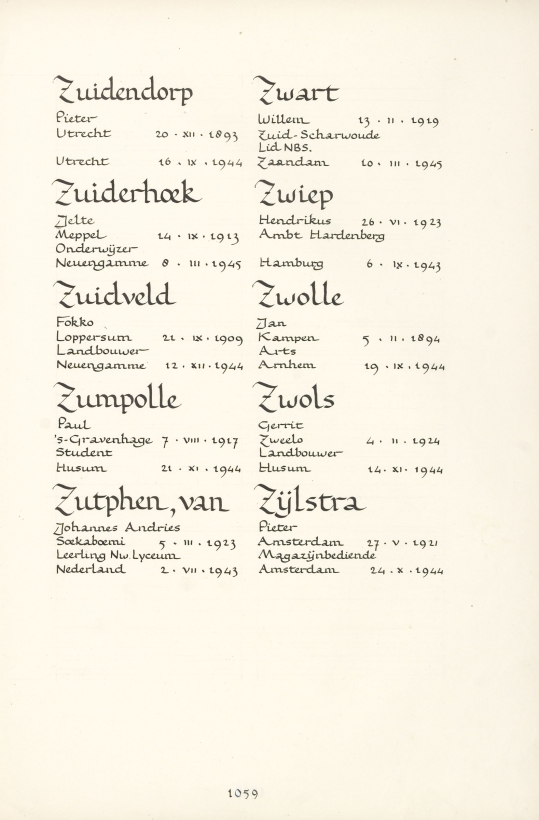 Zuidendorp
Pieter
Utrecht 20 · XII · 1893
Utrecht 16 · IX · 1944
Zuiderhoek
Jelte
Meppel 14 · IX · 1913
Onderwijzer
Neuengamme 8 · III · 1945
Zuidveld
Fokko
Loppersum 21 · IX · 1909
Landbouwer
Neuengamme 12 · XII · 1944
Zumpolle
Paul
's-Gravenhage 7 · VIII · 1917
Student
Husum 21 · XI · 1944
Zutphen, van
Johannes Andries
Soekaboemi 5 · III · 1923
Leerling Nw. Lyceum
Nederland 2 · VII · 1943
Zwart
Willem 13 · II · 1919
Zuid-Scharwoude
Lid NBS.
Zaandam 10 · III · 1945
Zwiep
Hendrikus 26 · VI · 1923
Ambt Hardenberg
Hamburg 6 · IX · 1943
Zwolle
Jan
Kampen 5 · II · 1894
Arts
Arnhem 19 · IX · 1944
Zwols
Gerrit
Zweelo 4 · II · 1924
Landbouwer
Husum 14 · XI · 1944
Zijlstra
Pieter
Amsterdam 27 · V · 1921
Magazijnbediende
Amsterdam 24 · X · 1944
1059